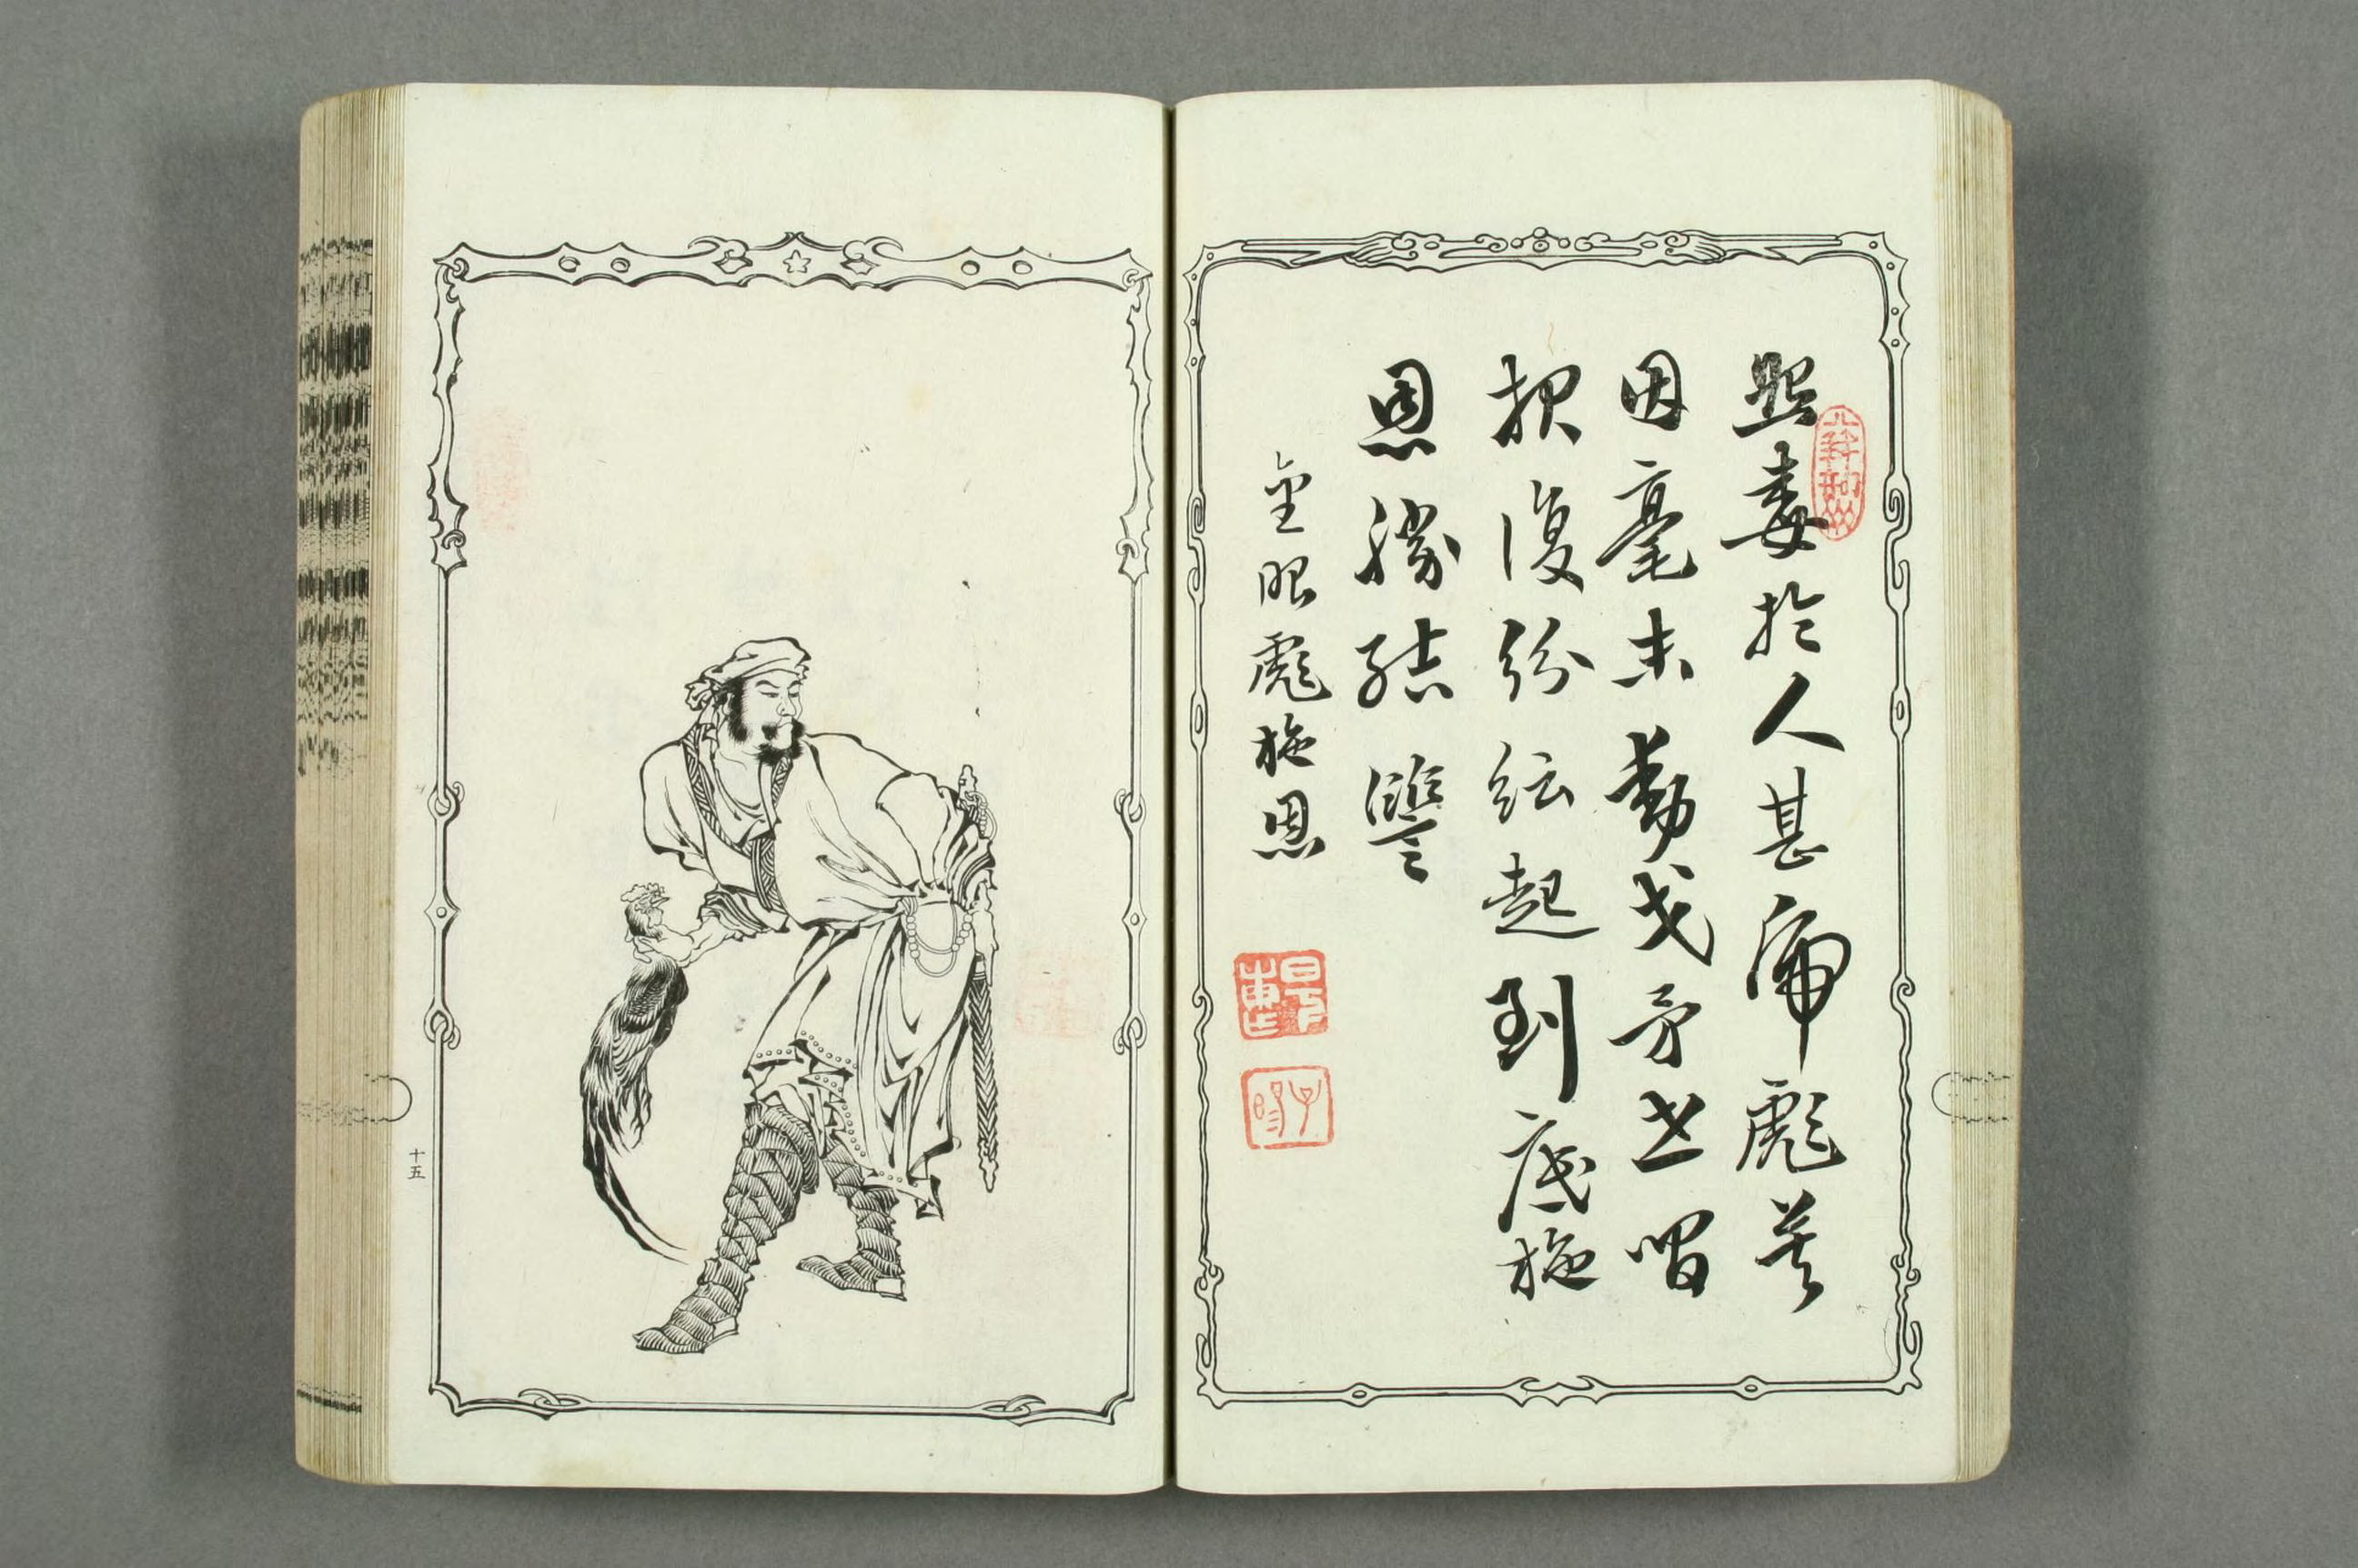 怨毒於人甚虎彪莫
因毫末動戈矛世間
報復紛紜起到底施
恩勝結讐
金眼彪施恩
十五